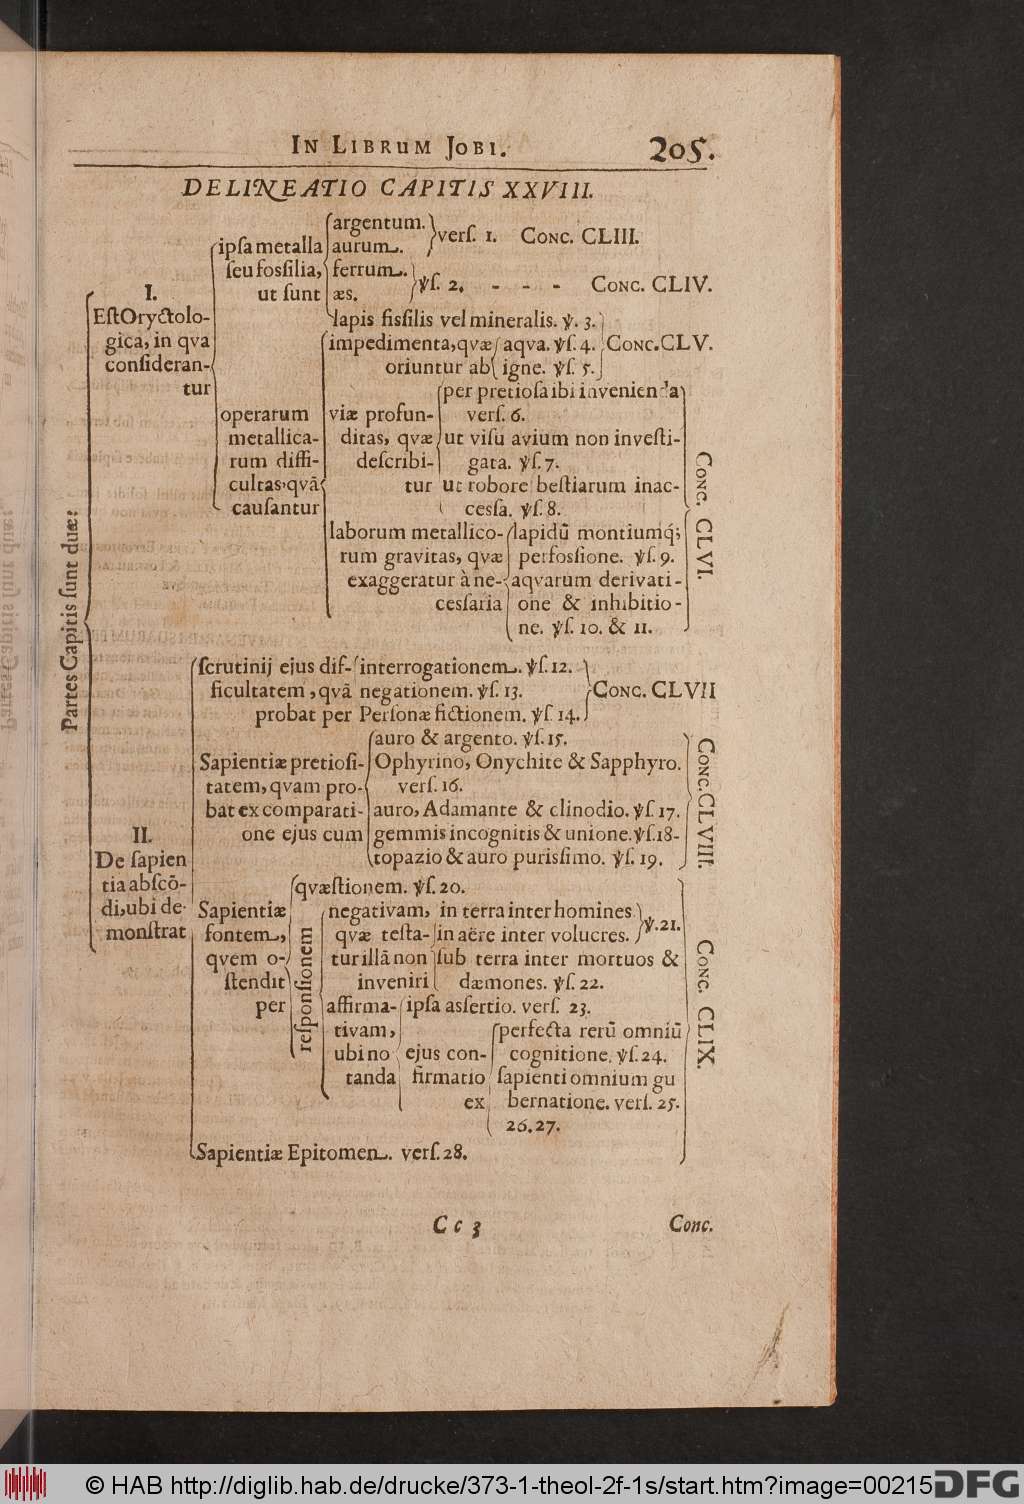 IN LIBRUM JOBI. 205.
DELINEATIO CAPITIS XXVIII.
Partes Capitis ſunt duæ:
I.
Eſt Oryctolo-
gica, in qva
conſideran-
tur
ipſa metalla
ſeu foſſilia,
ut ſunt
argentum.
aurum.
verſ. 1. CONC. CLIII.
ferrum.
æs.
℣ſ. 2. - - - CONC. CLIV.
lapis fisſilis vel mineralis. ℣. 3.
operarum
metallica-
rum diffi-
cultas, qvã
cauſantur
impedimenta, qvæ
oriuntur ab
aqva. ℣ſ. 4.
igne. ℣ſ. 5.
CONC. CLV.
viæ profun-
ditas, qvæ
deſcribi-
tur
per pretioſa ibi invenienda
verſ. 6.
ut viſu avium non inveſti-
gata. ℣ſ. 7.
ut robore beſtiarum inac-
cesſa. ℣ſ. 8.
laborum metallico-
rum gravitas, qvæ
exaggeratur à ne-
cesſaria
lapidũ montiumq́;
perfosſione. ℣ſ. 9.
aqvarum derivati-
one & inhibitio-
ne. ℣ſ. 10. & 11.
CONC. CLVI.
II.
De ſapien
tia abſcõ-
di, ubi de-
monſtrat
ſcrutinij ejus dif-
ficultatem, qvã
probat per
interrogationem. ℣ſ. 12.
negationem. ℣ſ. 13.
Perſonæ fictionem. ℣ſ. 14.
CONC. CLVII
Sapientiæ pretioſi-
tatem, qvam pro-
bat ex comparati-
one ejus cum
auro & argento. ℣ſ. 15.
Ophyrino, Onychite & Sapphyro.
verſ. 16.
auro, Adamante & clinodio. ℣ſ. 17.
gemmis incognitis & unione. ℣ſ. 18-
topazio & auro purisſimo. ℣ſ. 19.
CONC. CLVIII.
Sapientiæ
fontem,
qvem o-
ſtendit
per
qvæſtionem. ℣ſ. 20.
reſponſionem
negativam,
qvæ teſta-
tur illã non
inveniri
in terra inter homines
in aëre inter volucres.
℣. 21.
ſub terra inter mortuos &
dæmones. ℣ſ. 22.
affirma-
tivam,
ubi no
tanda
ipſa asſertio. verſ. 23.
ejus con-
firmatio
ex
perfecta rerũ omniũ
cognitione. ℣ſ. 24.
ſapienti omnium gu
bernatione. verſ. 25.
26. 27.
CONC. CLIX.
Sapientiæ Epitomen. verſ. 28.
Cc 3 Conc.
© HAB http://diglib.hab.de/drucke/373-1-theol-2f-1s/start.htm?image=00215 DFG